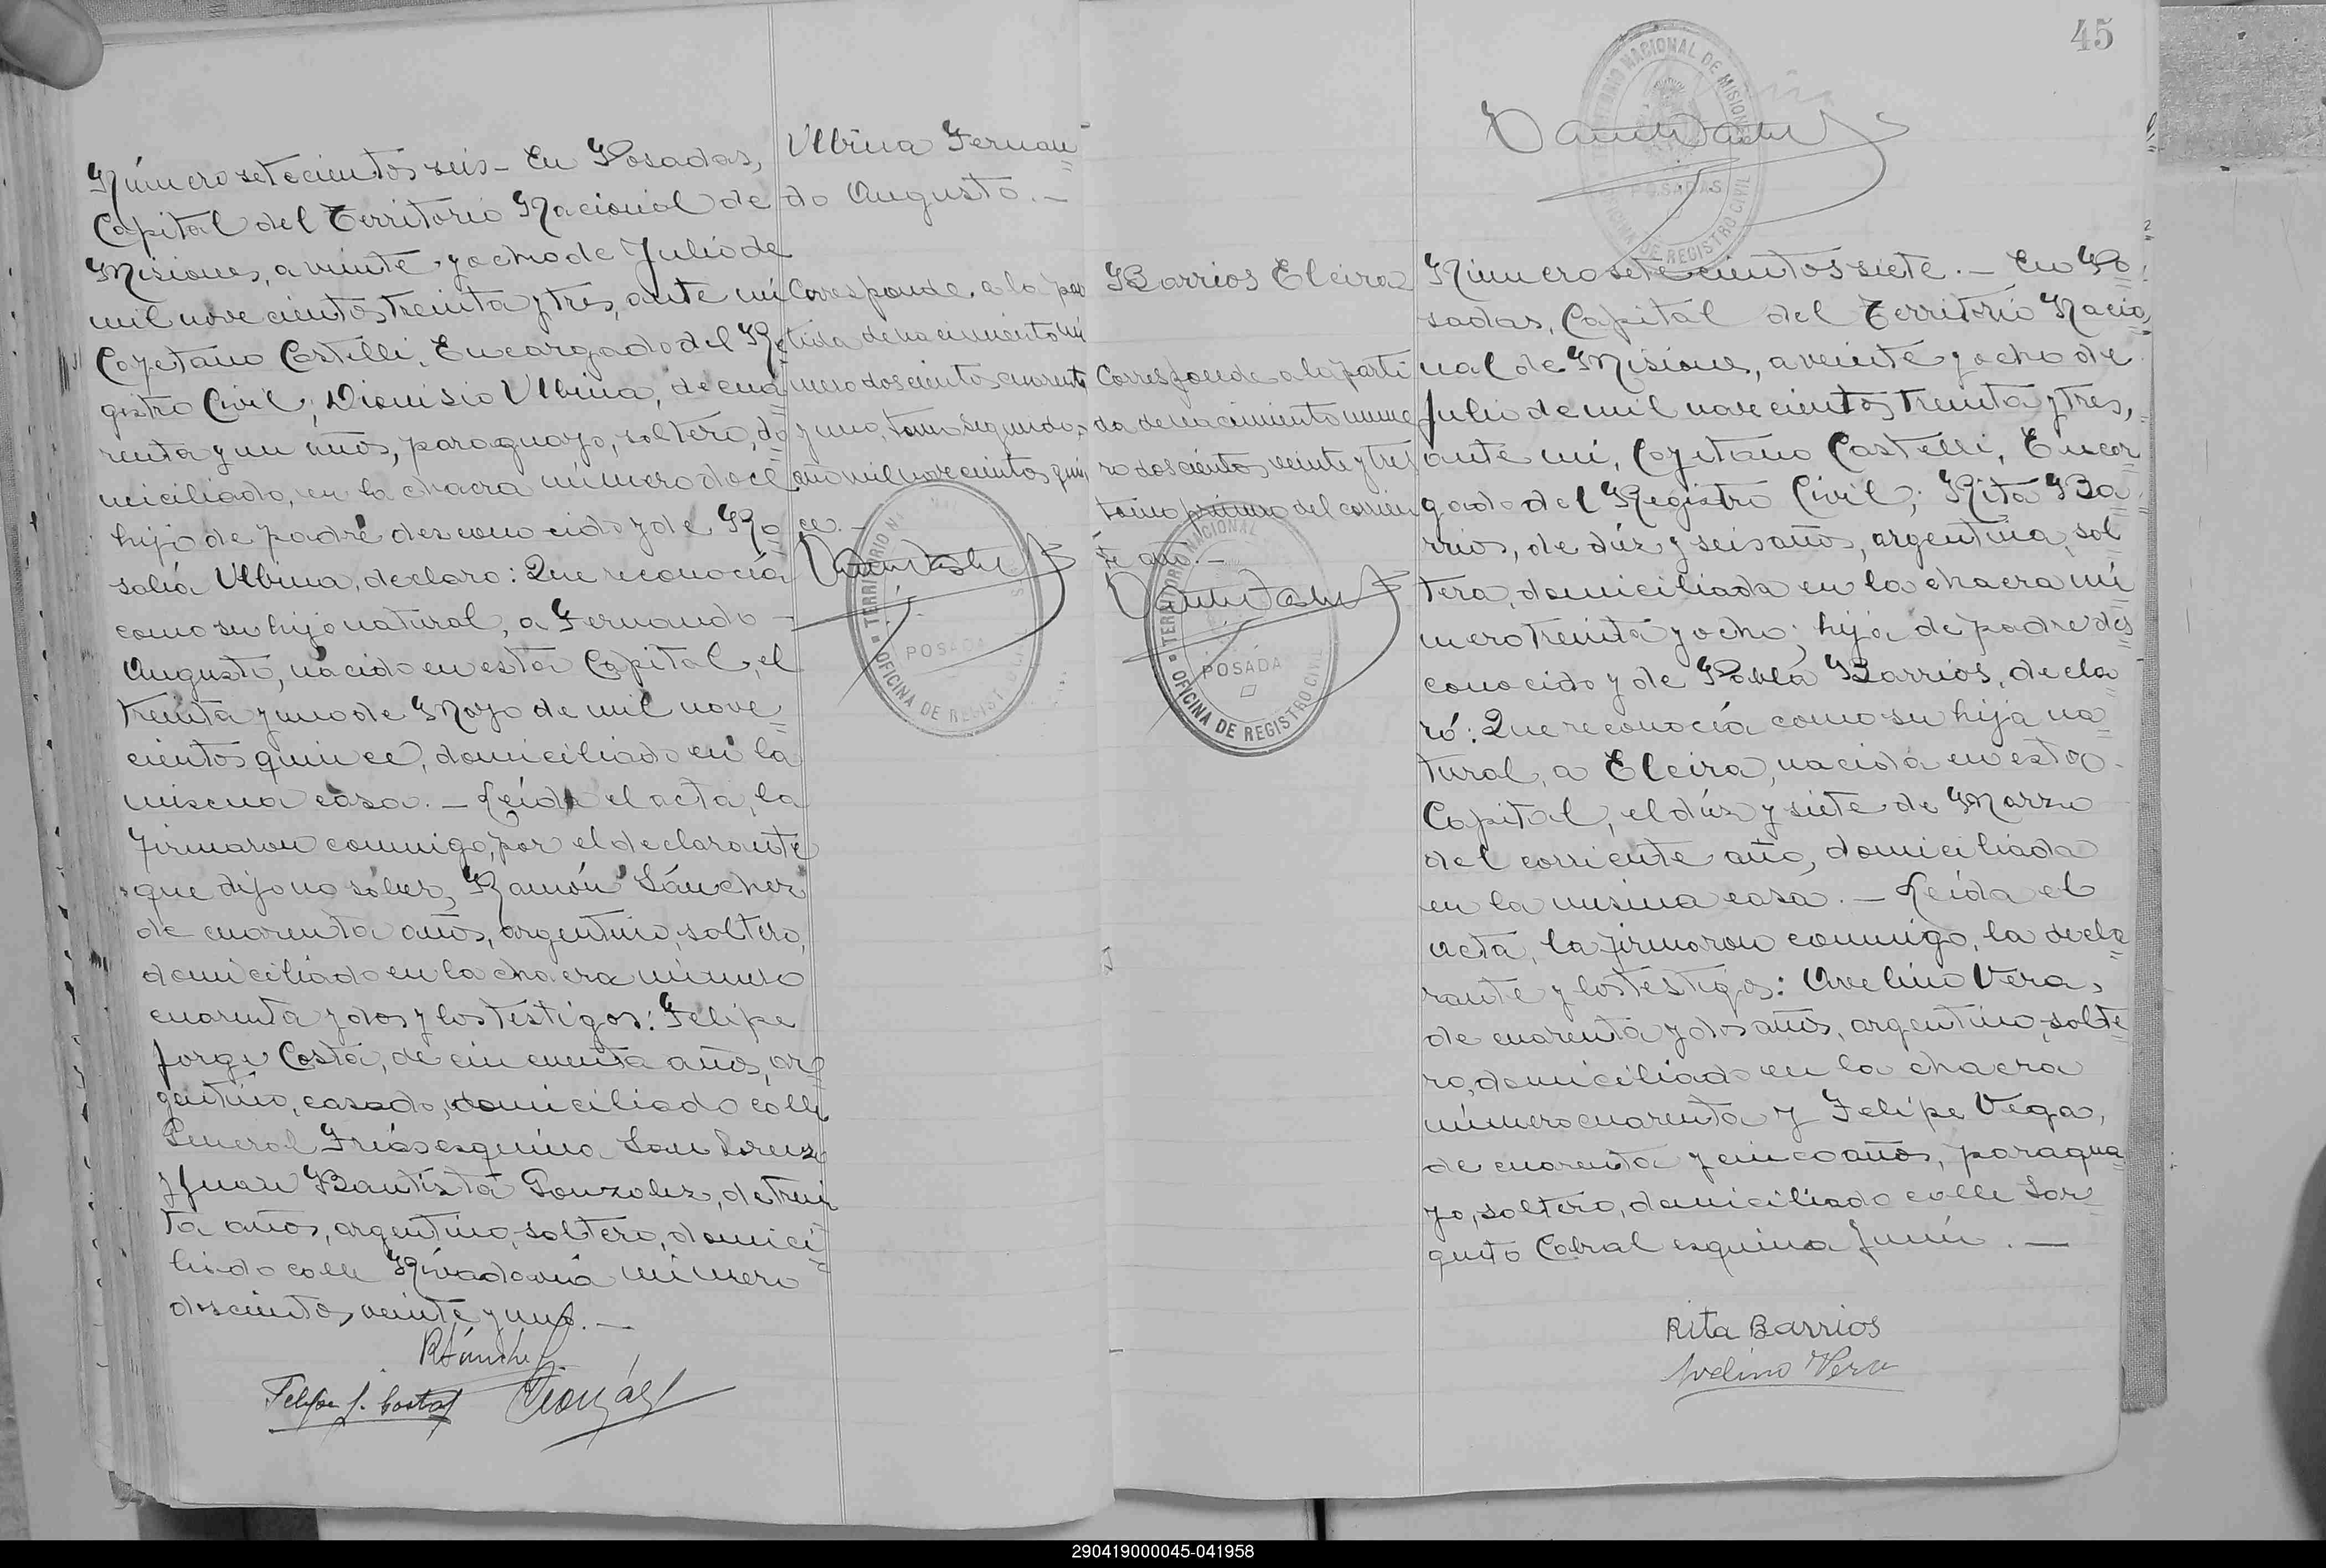 Número setecientos seis - En Posadas,
Capital del Territorio Nacional de
Misiones, a veinte y ocho de Julio de
mil novecientos treinta y tres, ante mí
Cayetano Castelli, Encargado del Re=
gistro Civil; Dionisio Ulbina, de cua=
renta y un años, paraguayo, soltero, do=
miciliado, en la chacra número doce
hijo de padre desconocido y de Ro=
salía Ulbina, declaro: Que reconocía
como su hijo natural, a Fernando -
Augusto, nacido en esta Capital, el
treinta y uno de Mayo de mil nove=
cientos quince, domiciliado en la
misma casa. - Leída el acta, la
firmaron conmigo, por el declarante
que dijo no saber, Ramón Sánchez
de cuarenta años, argentino, soltero,
domiciliado en la chacra número
cuarenta y dos y los testigos: Felipe
Jorge Costa, de cincuenta años, ar=
gentino, casado, domiciliado calle
General Frías esquina San Lorenzo
y Juan Bautista Gonzalez, de trein
ta años, argentino, soltero, domici=
liado calle Rivadavia número
doscientos veinte y uno. -
RSánchez
Felipe J. Costa
Ulbina Fernan=
do Augusto. -
Corresponde a la par
tida de nacimiento nú
mero doscientos cuarenta
y uno, tomo segundo,
año mil novecientos quin
ce. -
TERRITORIO N
POSADA
OFICINA DE REGIST
45
TERRITORIO NACIONAL DE MISIONES
POSADAS
OFICINA DE REGISTRO CIVIL
Barrios Elcira
Corresponde a la parti
da de nacimiento núme
ro doscientos veinte y tres
tomo primero del corrien
te año. -
TERRITORIO NACIONAL
POSADA
OFICINA DE REGISTRO CIVIL
Número setecientos siete. - En Po=
sadas, Capital del Territorio Nacio=
nal de Misiones, a veinte y ocho de
Julio de mil novecientos treinta y tres,
ante mí, Cayetano Castelli, Encar=
gado del Registro Civil; Rita Ba=
rrios, de diéz y seis años, argentina, sol
tera, domiciliada en la chacra nú
mero treinta y ocho; hija de padre des=
conocido y de Pabla Barrios, decla=
ró: Que reconocía como su hija na=
tural, a Elcira, nacida en esta -
Capital, el diéz y siete de Marzo
del corriente año, domiciliada
en la misma casa. - Leída el
acta, la firmaron conmigo, la decla=
rante y los testigos: Avelino Vera,
de cuarenta y dos años, argentino, solte=
ro, domiciliado en la chacra
número cuarenta y Felipe Vega,
de cuarenta y cinco años, paragua=
yo, soltero, domiciliado calle Sar=
gento Cabral esquina Junín. -
Rita Barrios
Avelino Vera
290419000045-041958